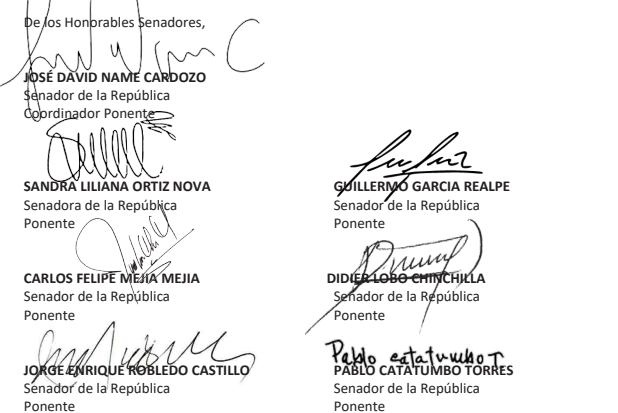 De los Honorables Senadores,
JOSÉ DAVID NAME CARDOZO
Senador de la República
Coordinador Ponente
SANDRA LILIANA ORTIZ NOVA
Senadora de la República
Ponente
GUILLERMO GARCIA REALPE
Senador de la República
Ponente
CARLOS FELIPE MEJIA MEJIA
Senador de la República
Ponente
DIDIER LOBO CHINCHILLA
Senador de la República
Ponente
JORGE ENRIQUE ROBLEDO CASTILLO
Senador de la República
Ponente
Pablo catatumbo T
PABLO CATATUMBO TORRES
Senador de la República
Ponente